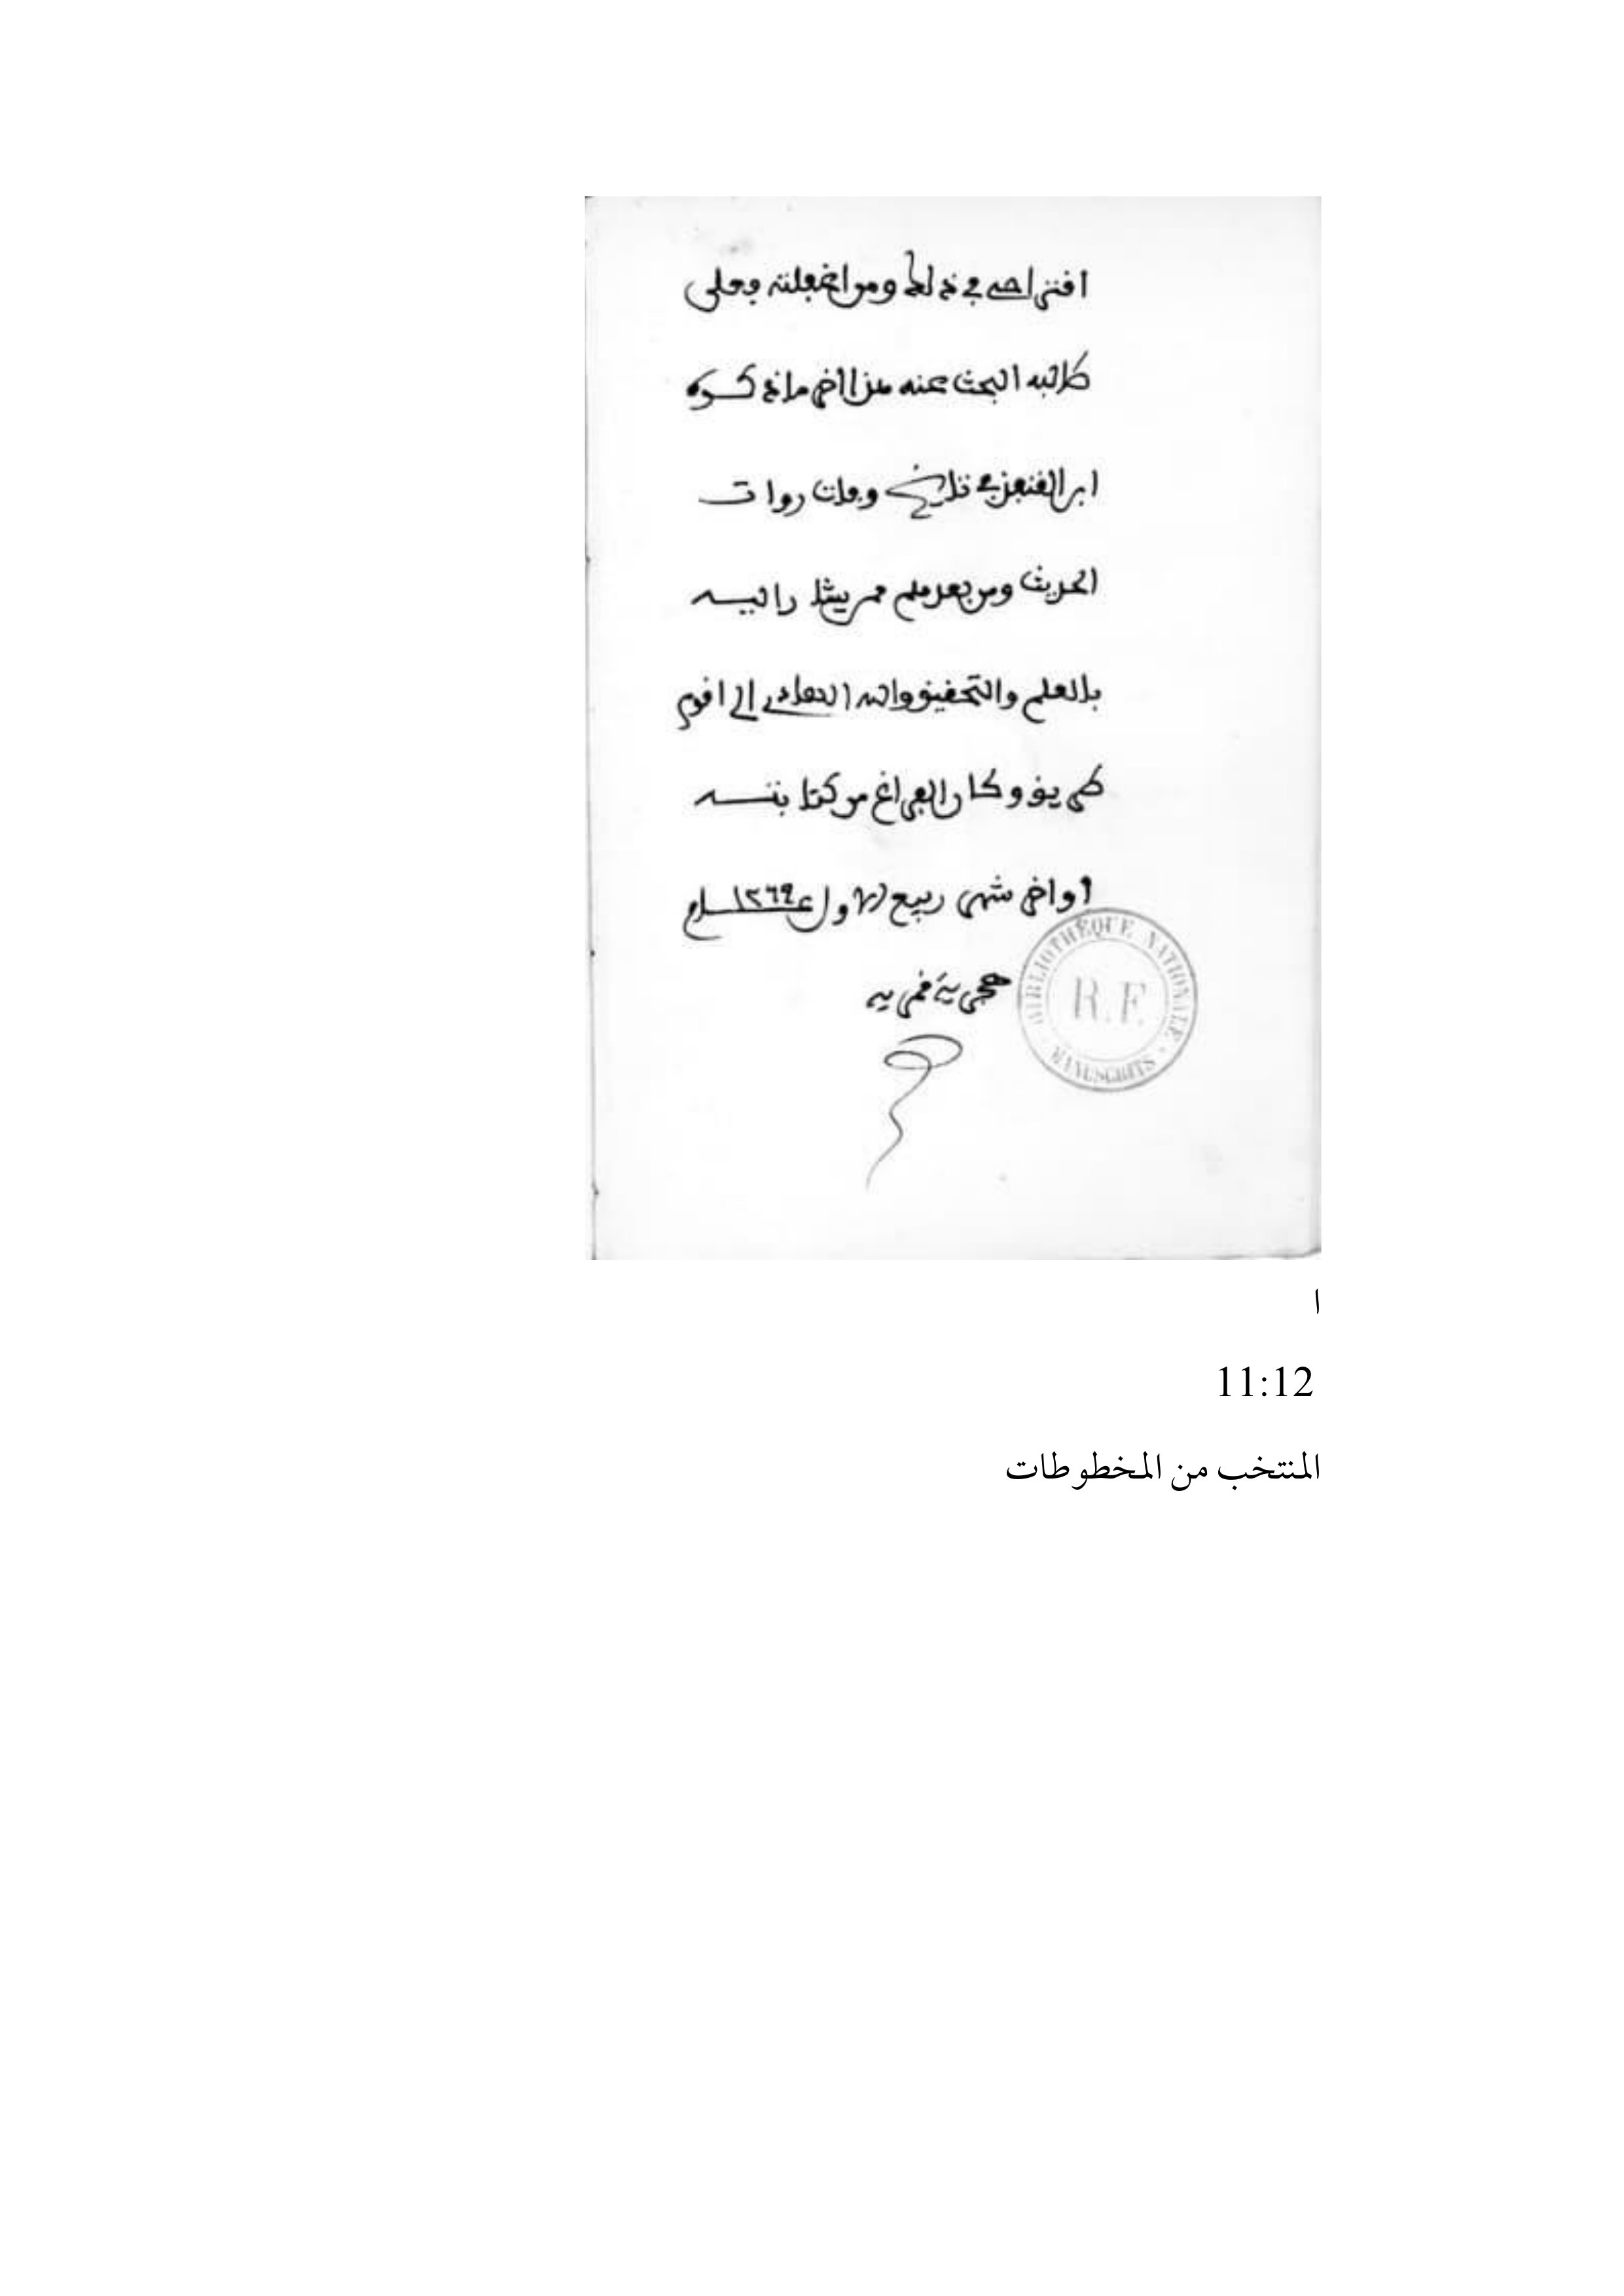 افتراحي في ذلك ومن اغفلته فعلى
طالبه البحث عنه هذا اخر ما ذكره
ابن القنفذ في تاريخ وفات روات
الحديث ومن بعدهم ممن يشار اليه
بالعلم والتحقيق والله الهادي الى اقوم
طريق وكان الفراغ من كتابته
اواخر شهر ربيع الاول ع ١٢٦٩
هجرية قمرية
BIBLIOTHÈQUE NATIONALE
R.F.
MANUSCRITS
ا
11:12
المنتخب من المخطوطات